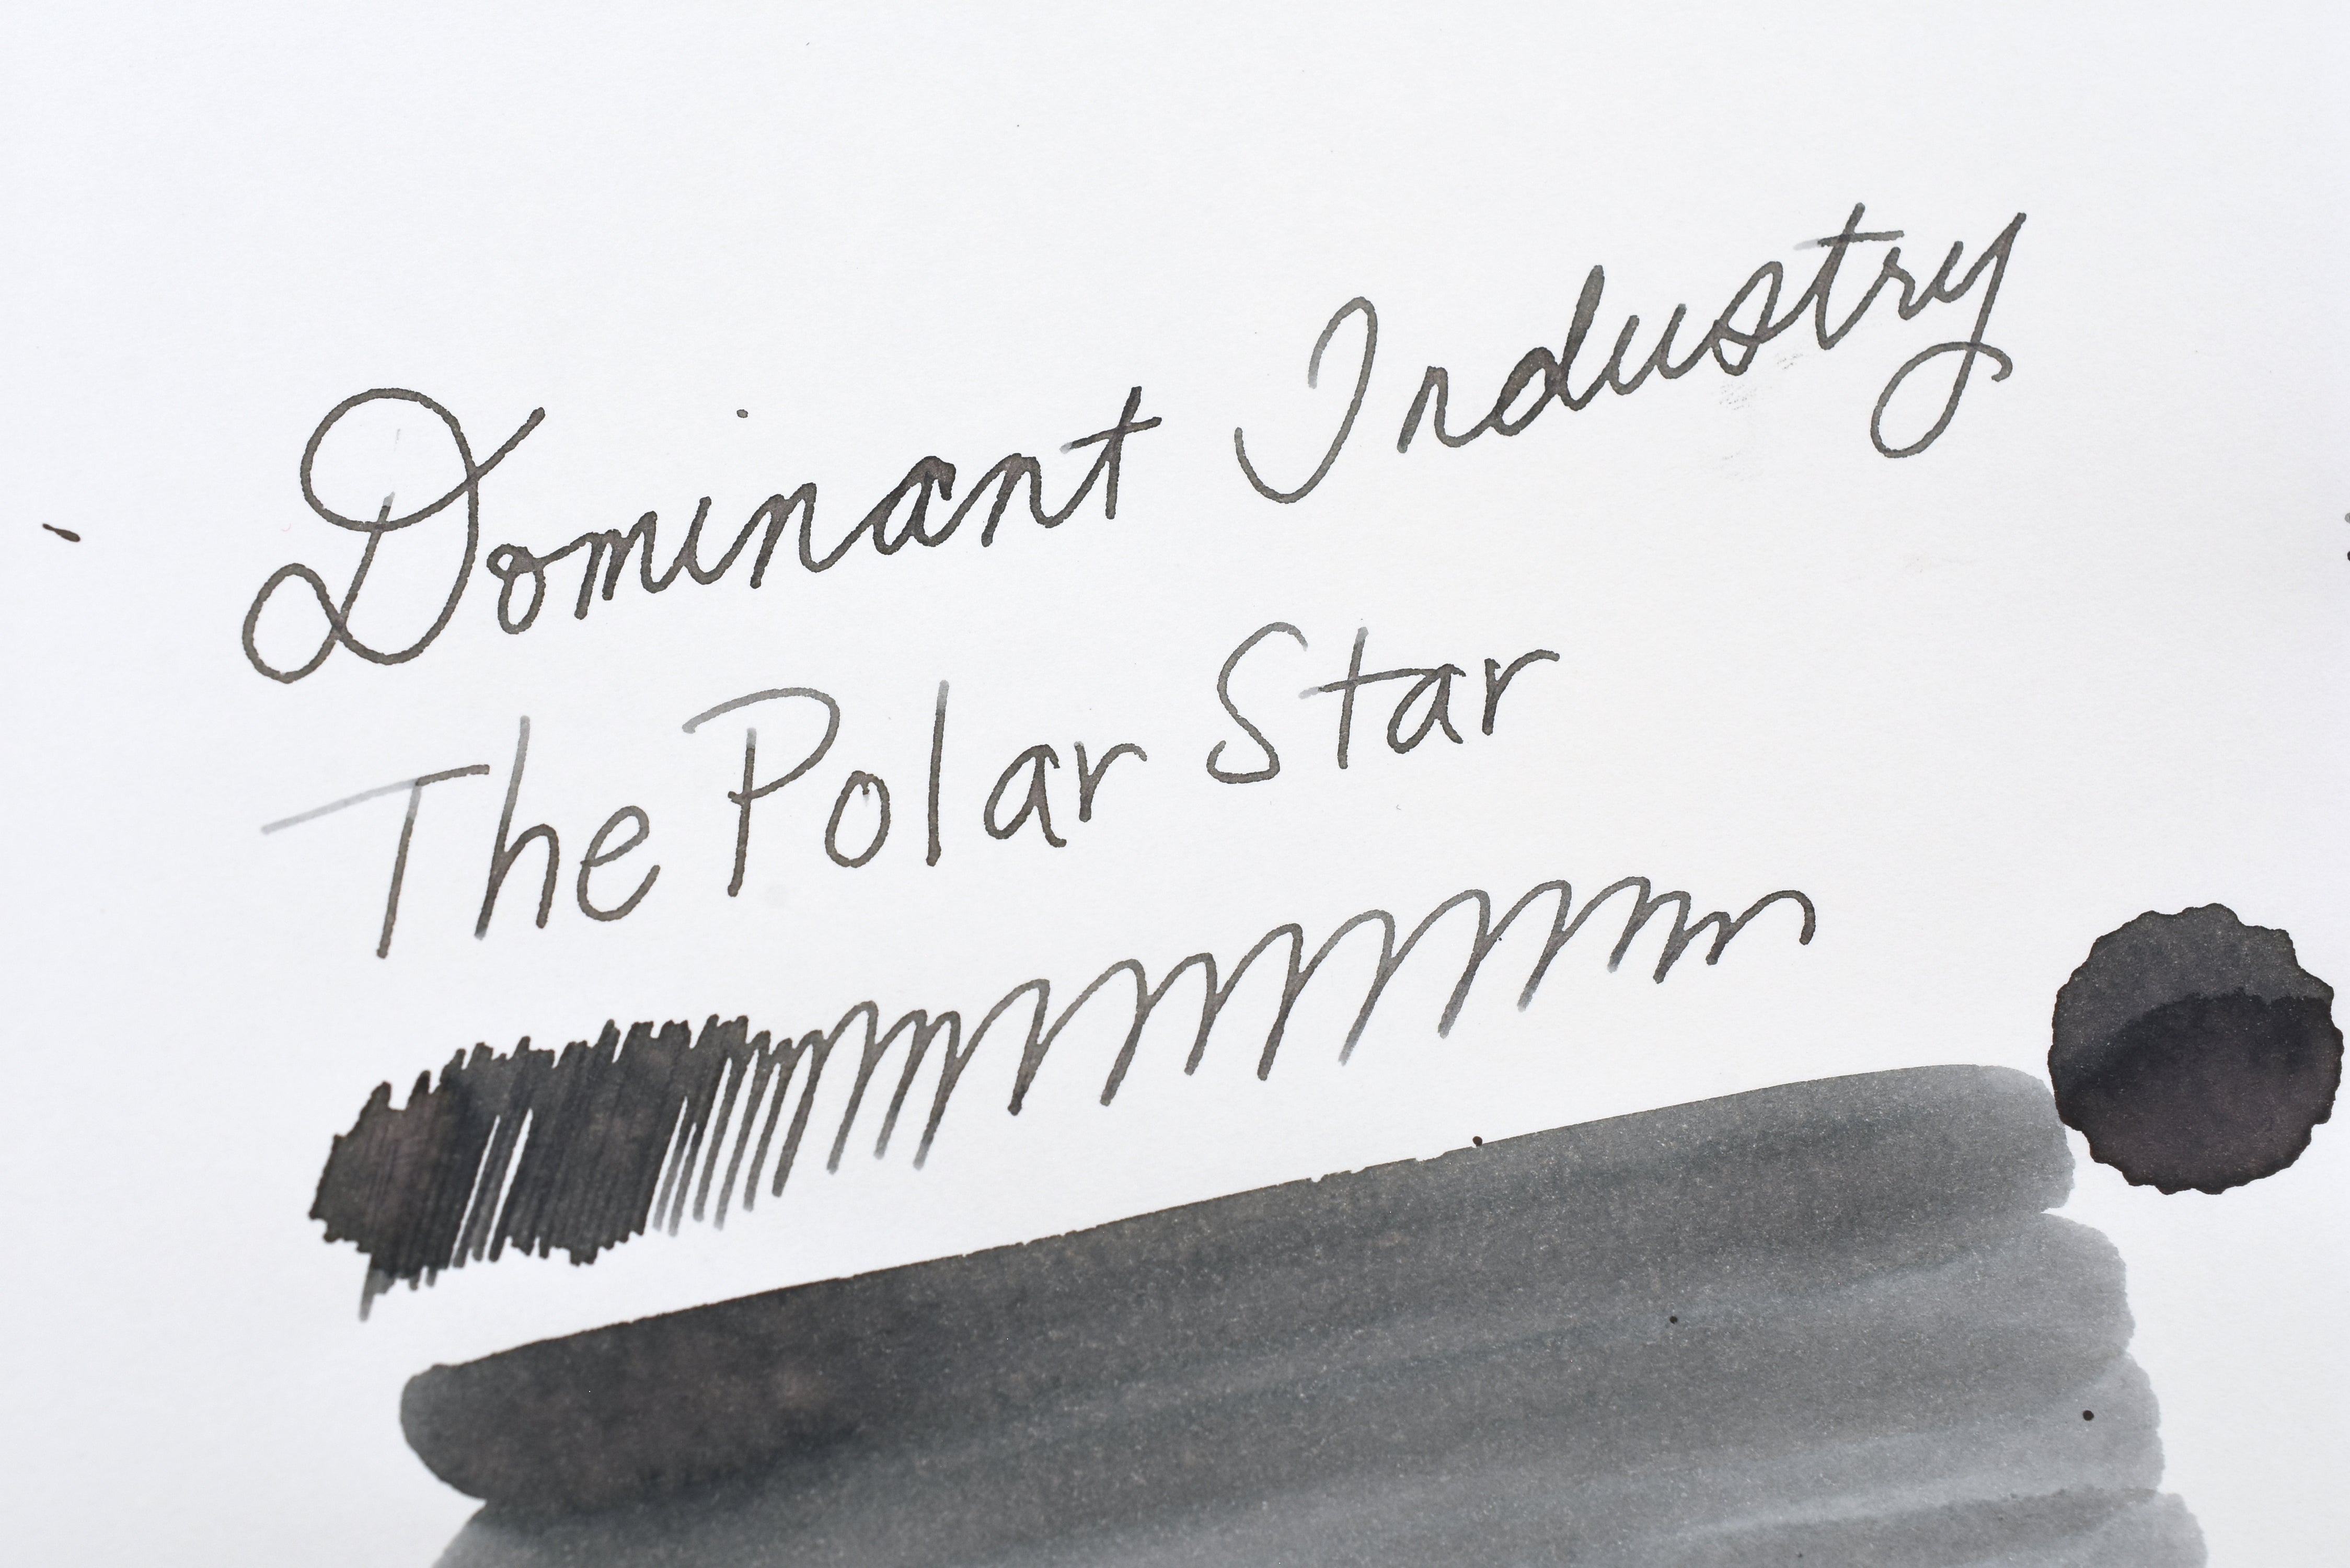 Dominant Industry
The Polar Star